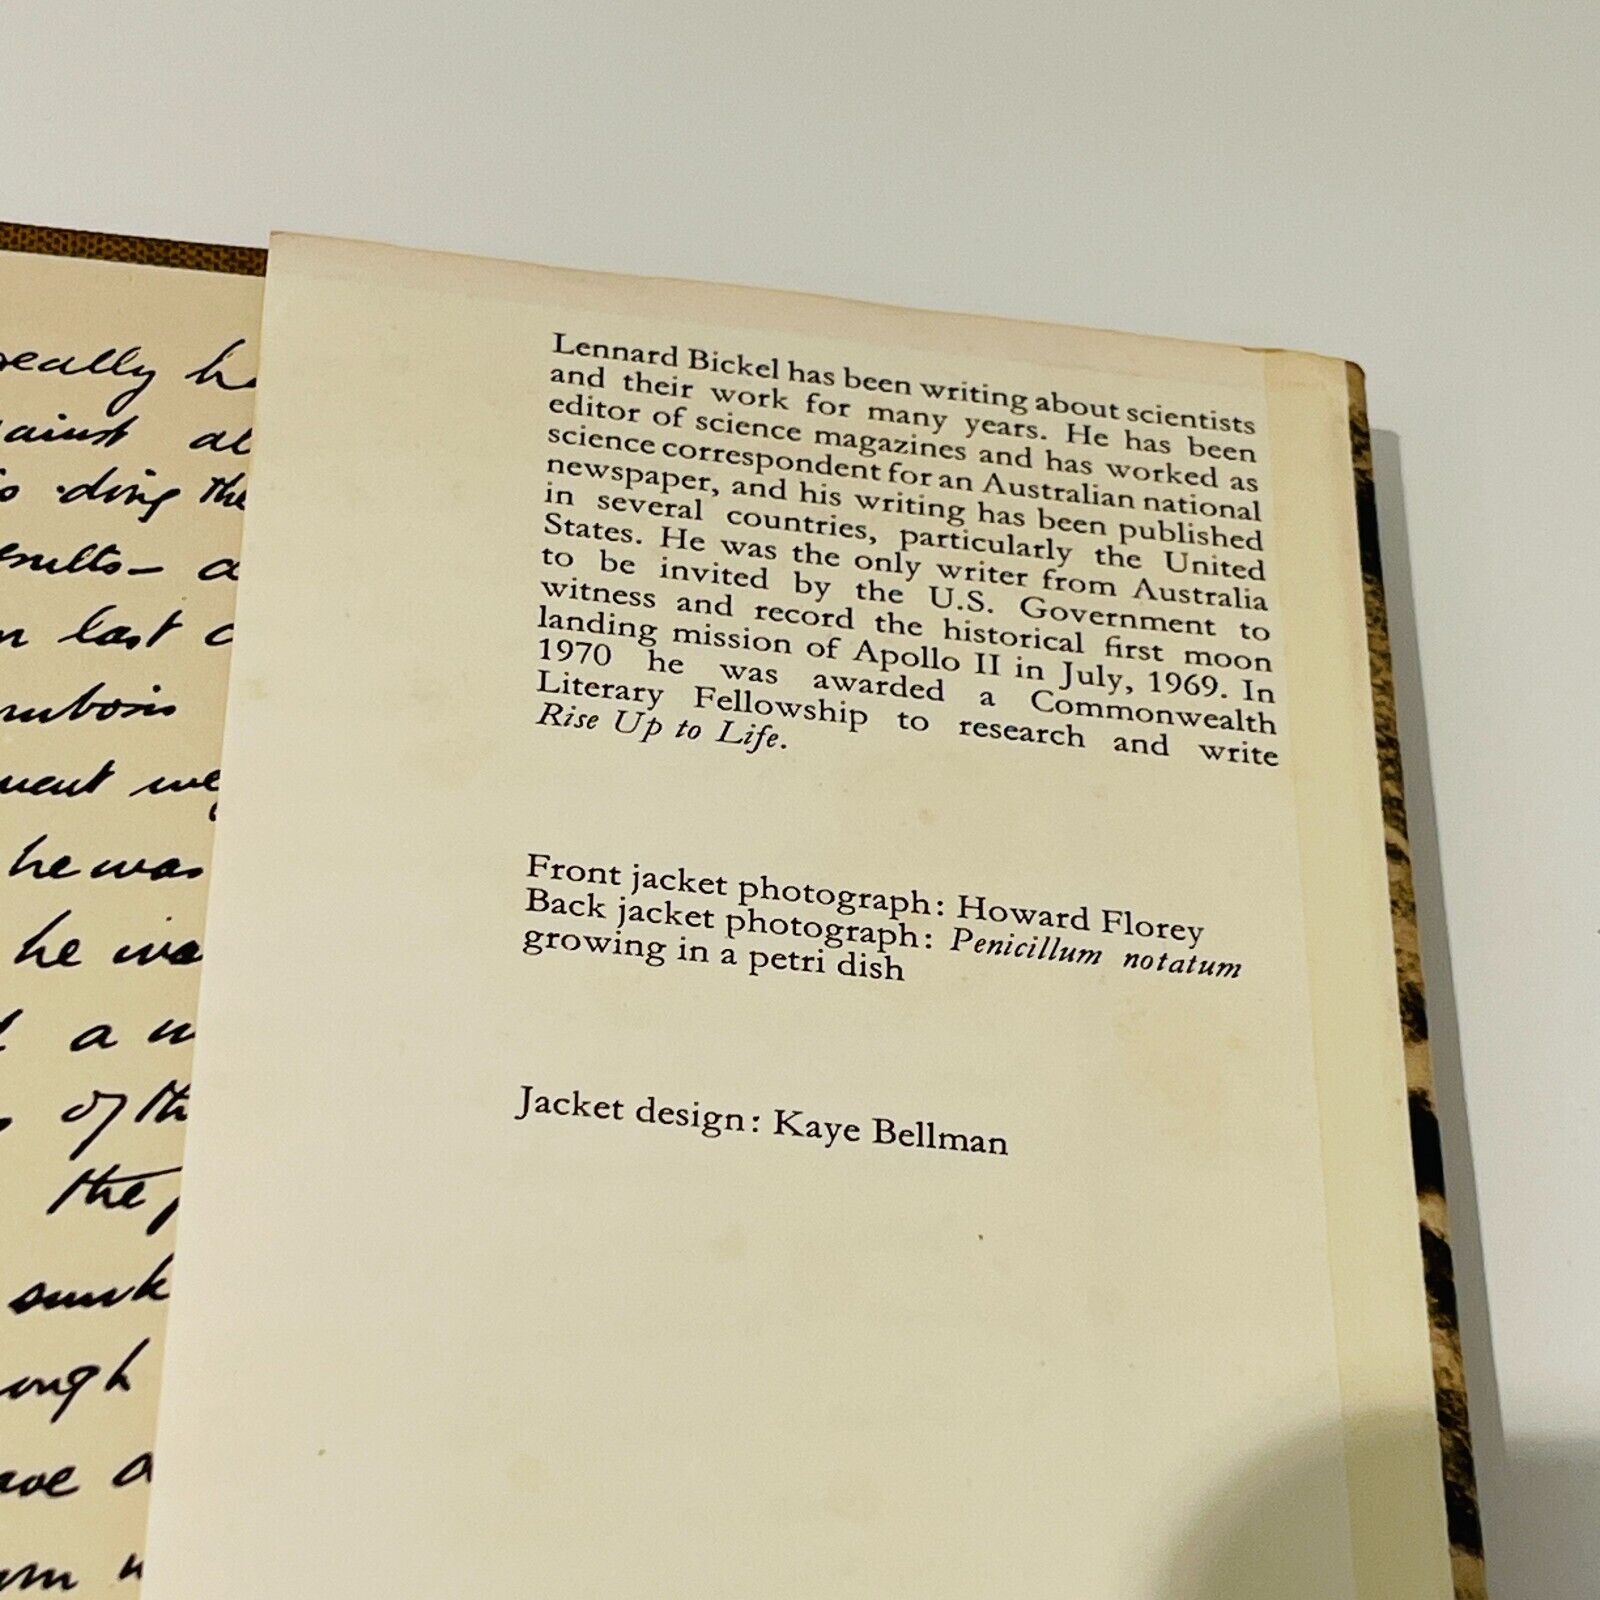 really
against
doing the
results—
last

he was
he was
a
of the
the
smoke
Lennard Bickel has been writing about scientists
and their work for many years. He has been
editor of science magazines and has worked as
science correspondent for an Australian national
newspaper, and his writing has been published
in several countries, particularly the United
States. He was the only writer from Australia
to be invited by the U.S. Government to
witness and record the historical first moon
landing mission of Apollo II in July, 1969. In
1970 he was awarded a Commonwealth
Literary Fellowship to research and write
Rise Up to Life.
Front jacket photograph: Howard Florey
Back jacket photograph: Penicillum notatum
growing in a petri dish
Jacket design: Kaye Bellman